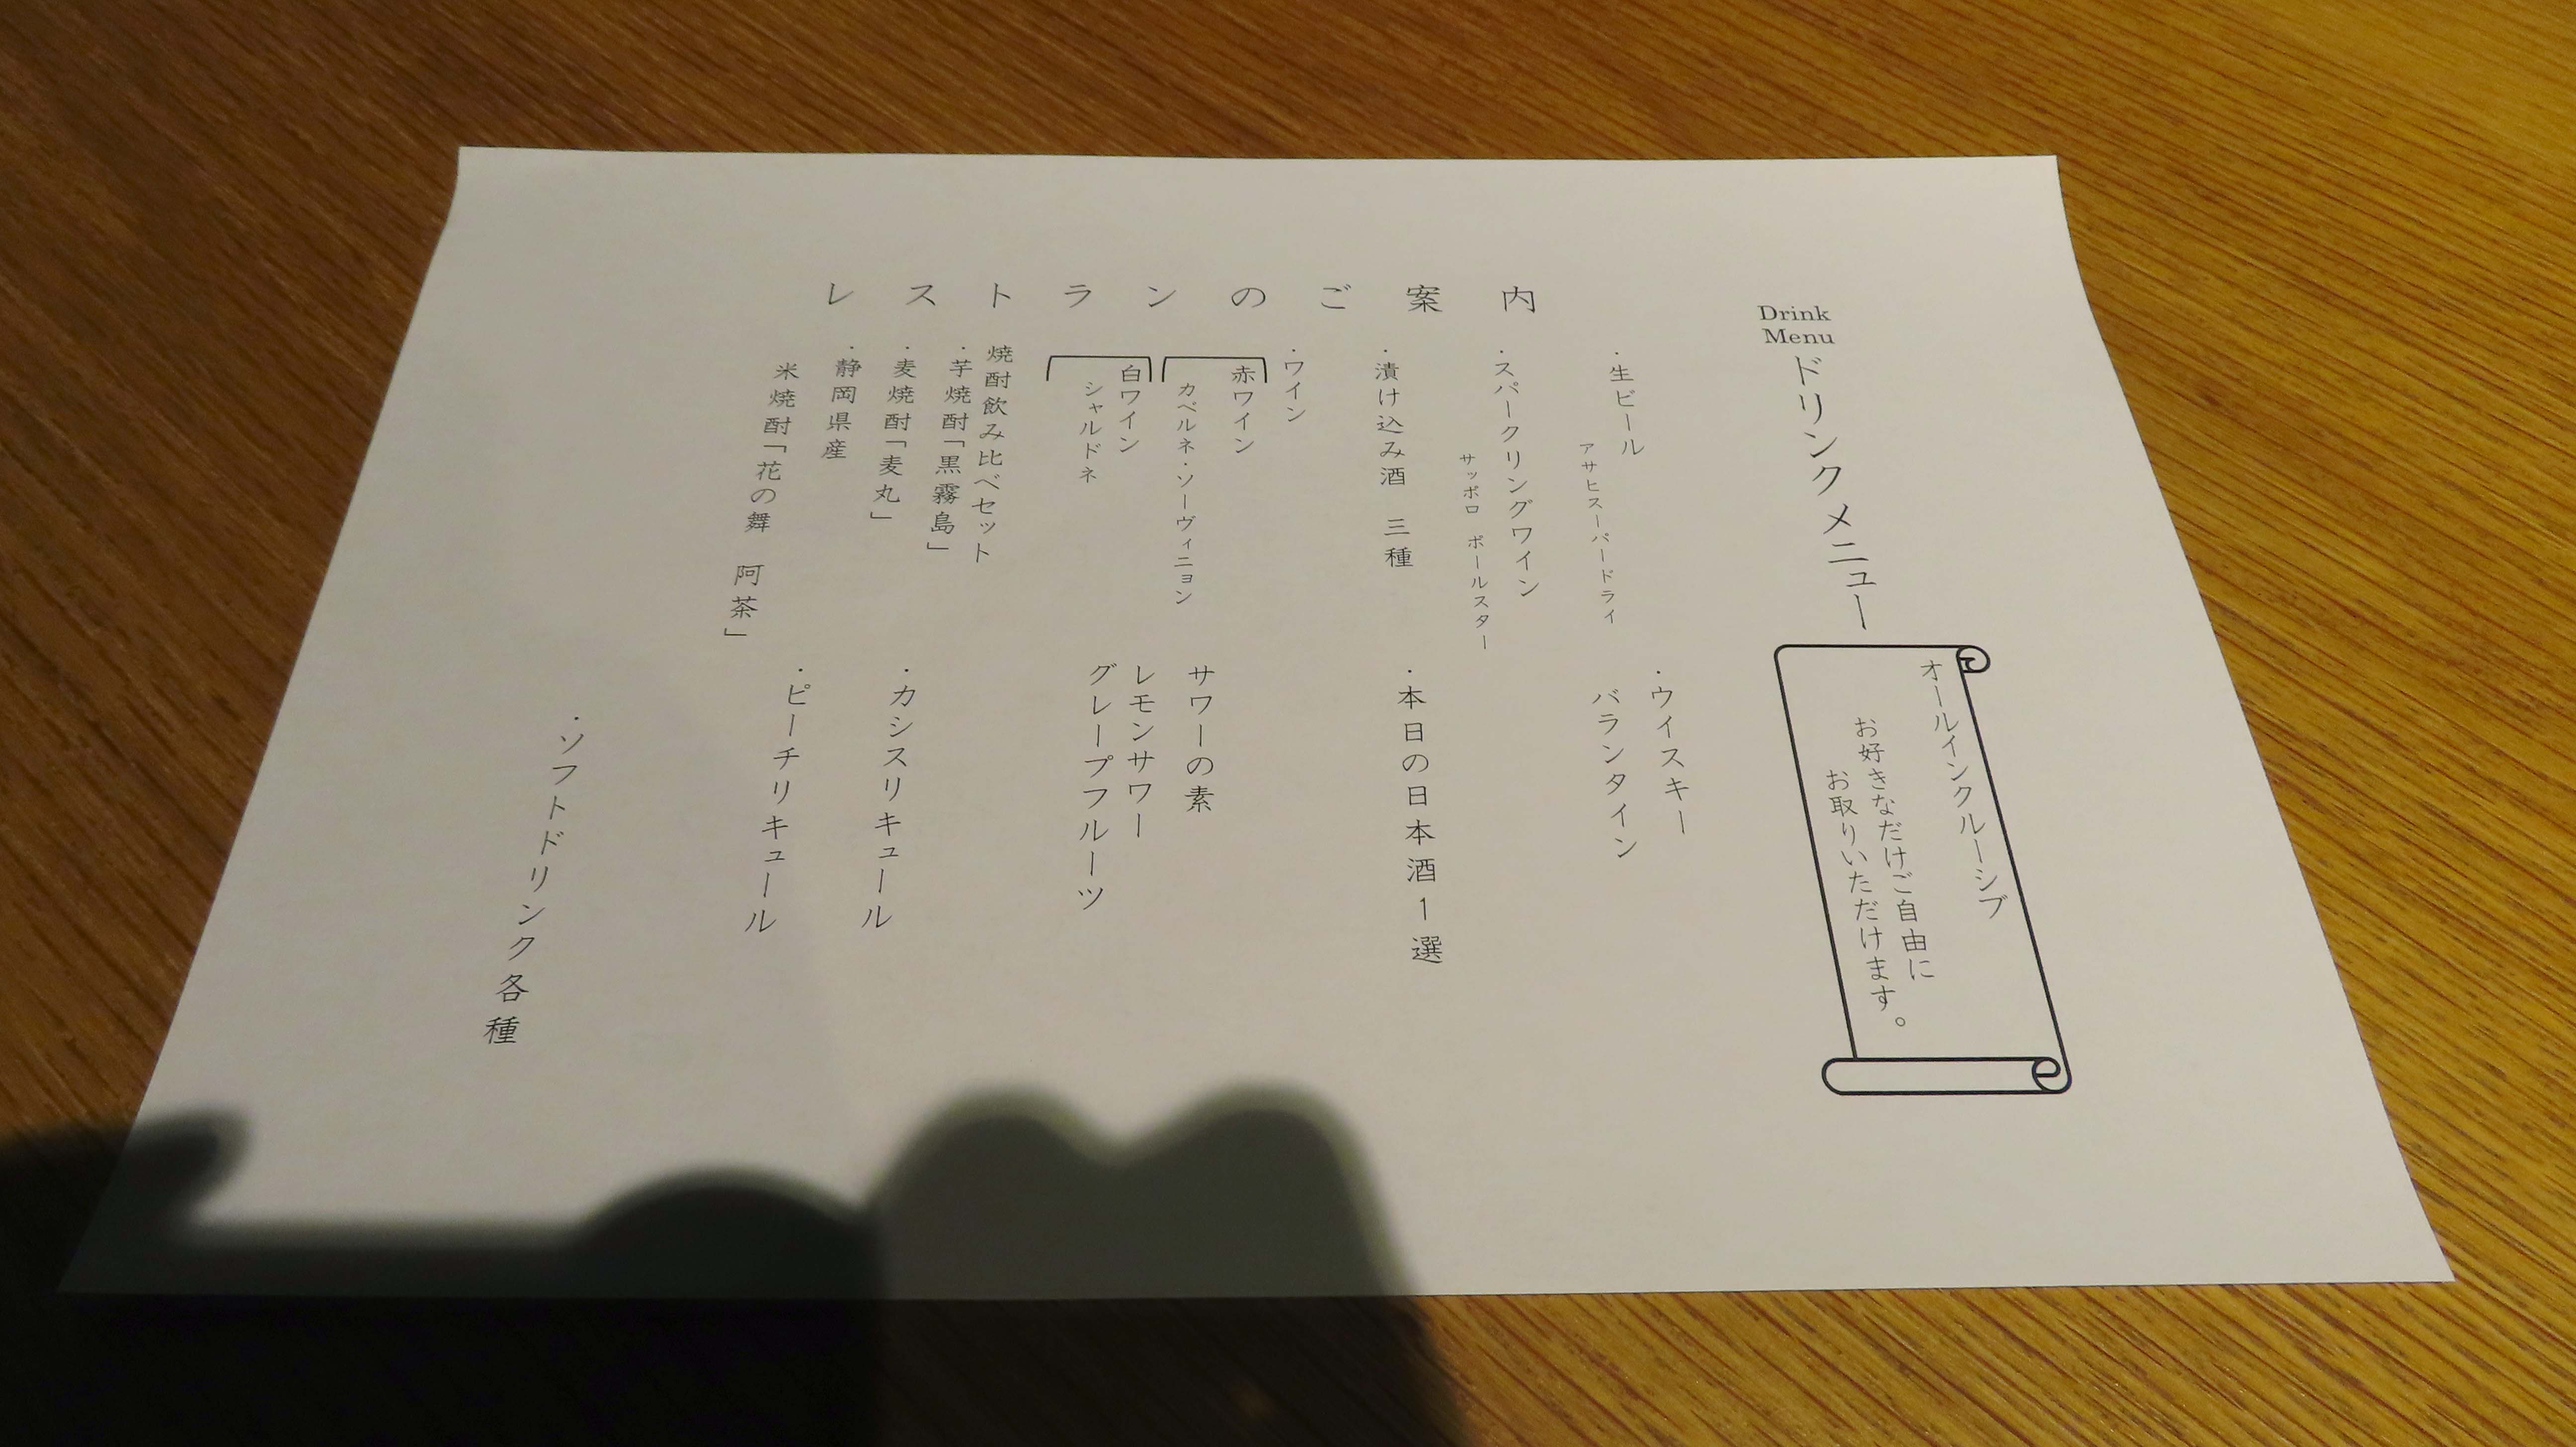 レストランのご案内
Drink
Menu
ドリンクメニュー
オールインクルーシブ
お好きなだけご自由に
お取りいただけます。
・生ビール
アサヒスーパードライ
・スパークリングワイン
サッポロ ポールスター
・漬け込み酒 三種
・ワイン
赤ワイン
カベルネ・ソーヴィニョン
白ワイン
シャルドネ
焼酎飲み比べセット
・芋焼酎「黒霧島」
・麦焼酎「麦丸」
・静岡県産
米焼酎「花の舞 阿茶」
・ウイスキー
バランタイン
・本日の日本酒1選
サワーの素
レモンサワー
グレープフルーツ
・カシスリキュール
・ピーチリキュール
・ソフトドリンク各種